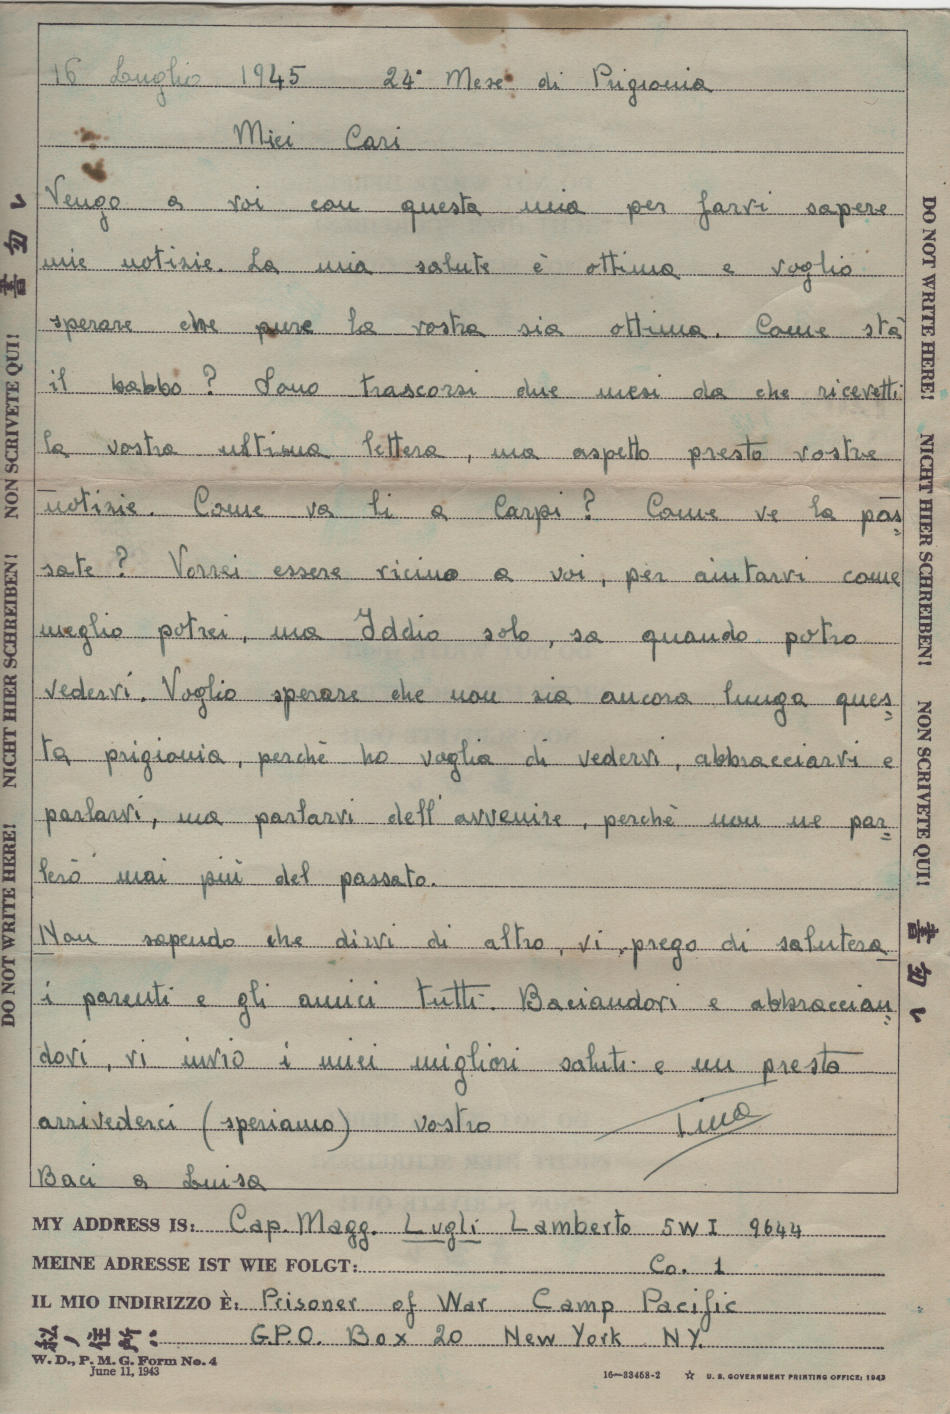 16 Luglio 1945 24° Mese di Prigionia
Miei Cari
Vengo a voi con questa mia per farvi sapere
mie notizie. La mia salute è ottima e voglio
sperare che pure la vostra sia ottima. Come stà
il babbo? Sono trascorsi due mesi da che ricevetti
la vostra ultima lettera, ma aspetto presto vostre
notizie. Come va li a Carpi? Come ve la pas=
sate? Vorrei essere vicino a voi, per aiutarvi come
meglio potrei, ma Iddio solo, sa quando potro
vedervi. Voglio sperare che non sia ancora lunga ques=
ta prigionia, perchè ho voglia di vedervi, abbracciarvi e
parlarvi, ma parlarvi dell'avvenire, perchè non ne par=
lerò mai più del passato.
Non sapendo che dirvi di altro, vi prego di salutera
i parenti e gli amici tutti. Baciandovi e abbraccian=
dovi, vi invio i miei migliori saluti e un presto
arrivederci (speriamo) vostro
Baci a Luisa
MY ADDRESS IS: Cap. Magg. Lugli Lamberto 5WI 9644
MEINE ADRESSE IST WIE FOLGT: Co. 1
IL MIO INDIRIZZO È: Prisoner of War Camp Pacific
私ノ住所ハ G.P.O. Box 20 New York N.Y.
W. D., P. M. G. Form No. 4
June 11, 1943
16—33468-2 ☆ U. S. GOVERNMENT PRINTING OFFICE: 1943
DO NOT WRITE HERE! NICHT HIER SCHREIBEN! NON SCRIVETE QUI! 書勿レ
DO NOT WRITE HERE! NICHT HIER SCHREIBEN! NON SCRIVETE QUI! 書勿レ